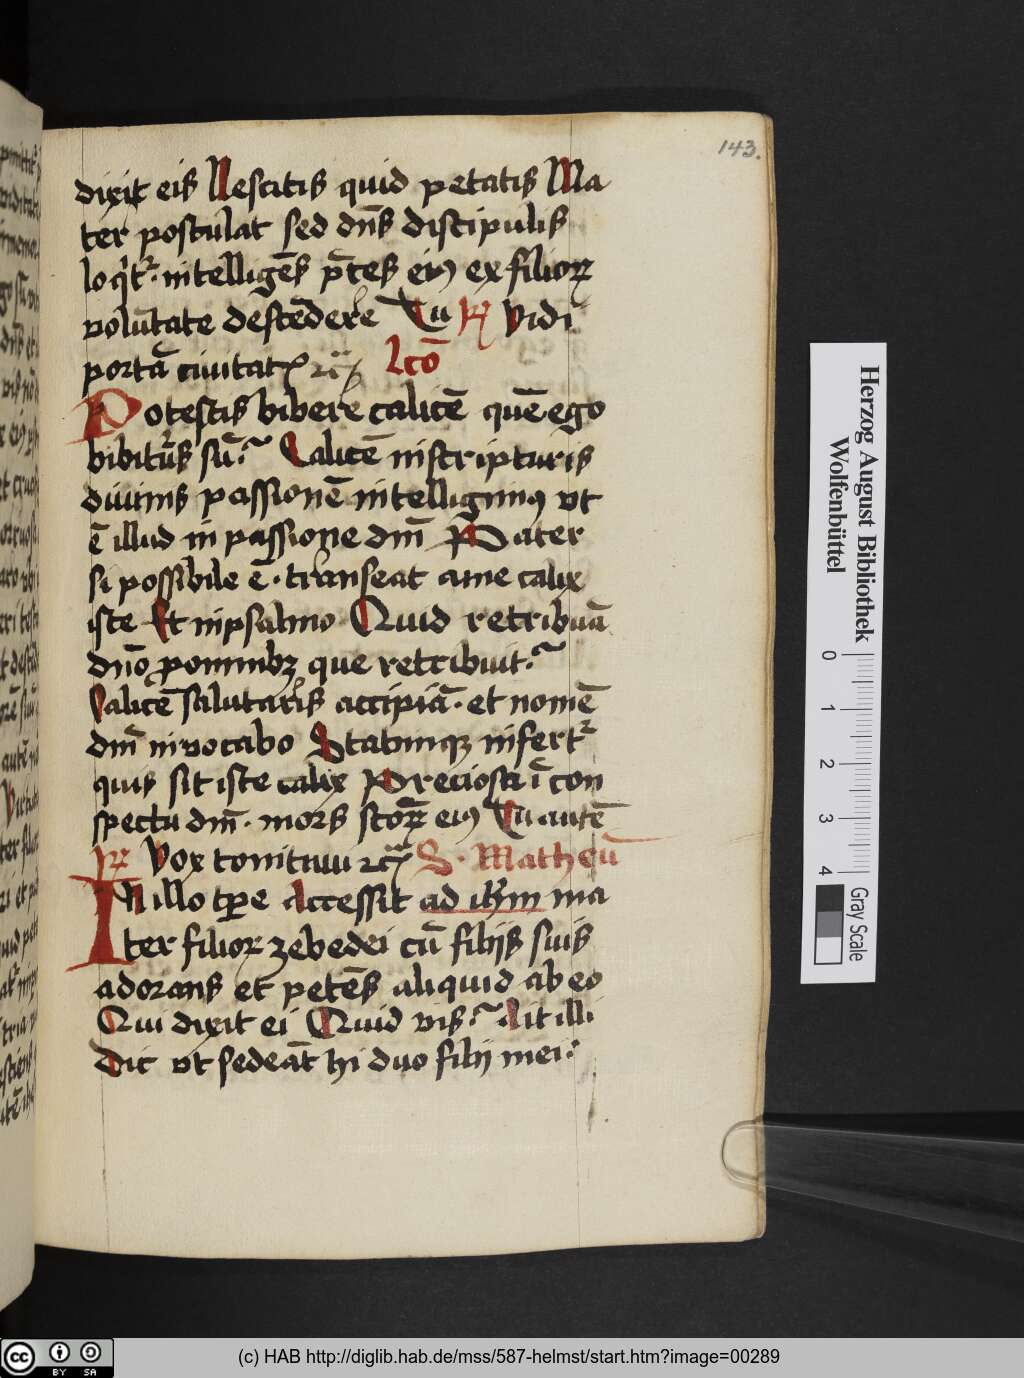 143.
dixit eis Nescitis quid petatis Ma
ter postulat sed dn̄s discipulis
loqͥtᷣ. intelligēs p̄ces eiꝰ ex filioꝝ
volūtate descēdere Tu ℟ vidi
portā ciuitatꝭ ⁊cͣ Lcō
Potestis bibere calicē quē ego
bibitᷣus sū? Calicē in scripturis
diuinis passionē intelligimꝰ vt
ē illud in passione dm̄ Pater
si possibile ē. transeat a me calix
iste Et in psalmo Quid retribuā
dn̄o ꝓ omnibꝫ que retribuit?
Calicē salutaris accipiā. et nomē
dm̄ inuocabo Statimqꝫ infertᷣ
quis sit iste calix Preciosa ī con
spectu dm̄. mors sc̄oꝝ eiꝰ Tu autē
℟ Vox tonitrui ⁊cͣ S. Matheū
In illo tꝑe Accessit ad ih̄m ma
ter filioꝝ zebedei cū filijs suis
adorans et petēs aliquid ab eo
Qui dixit ei Quid vis? Ait illi
Dic vt sedeāt hi duo filij mei.
Herzog August Bibliothek
Wolfenbüttel
0 1 2 3 4
Gray Scale
cc BY SA
(c) HAB http://diglib.hab.de/mss/587-helmst/start.htm?image=00289